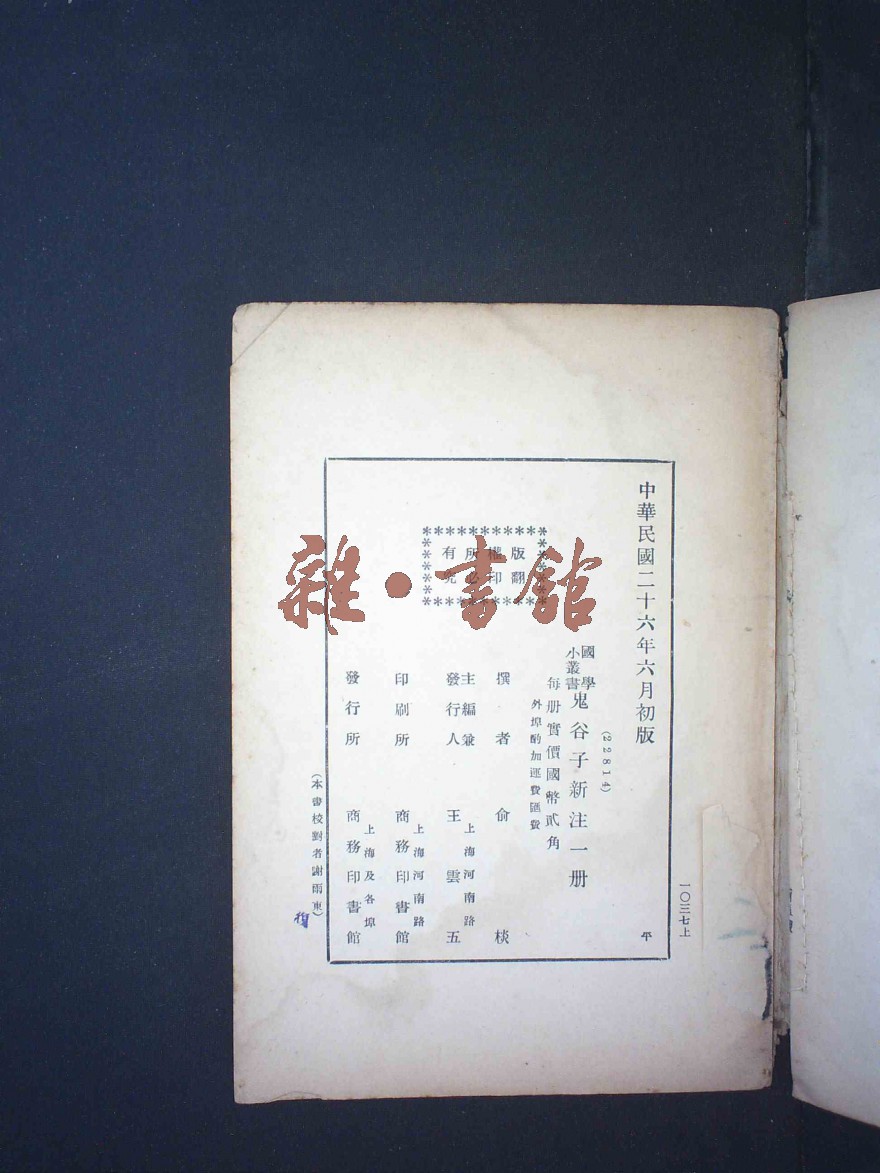 一〇三七上
中華民國二十六年六月初版
平
(22814)
國學
小叢書
鬼谷子新注一册
每册實價國幣貳角
外埠酌加運費匯費
版權所有
翻印必究
撰者 俞棪
上海河南路
主編兼
發行人 王雲五
上海河南路
印刷所 商務印書館
上海及各埠
發行所 商務印書館
(本書校對者謝雨東)
雜·書館